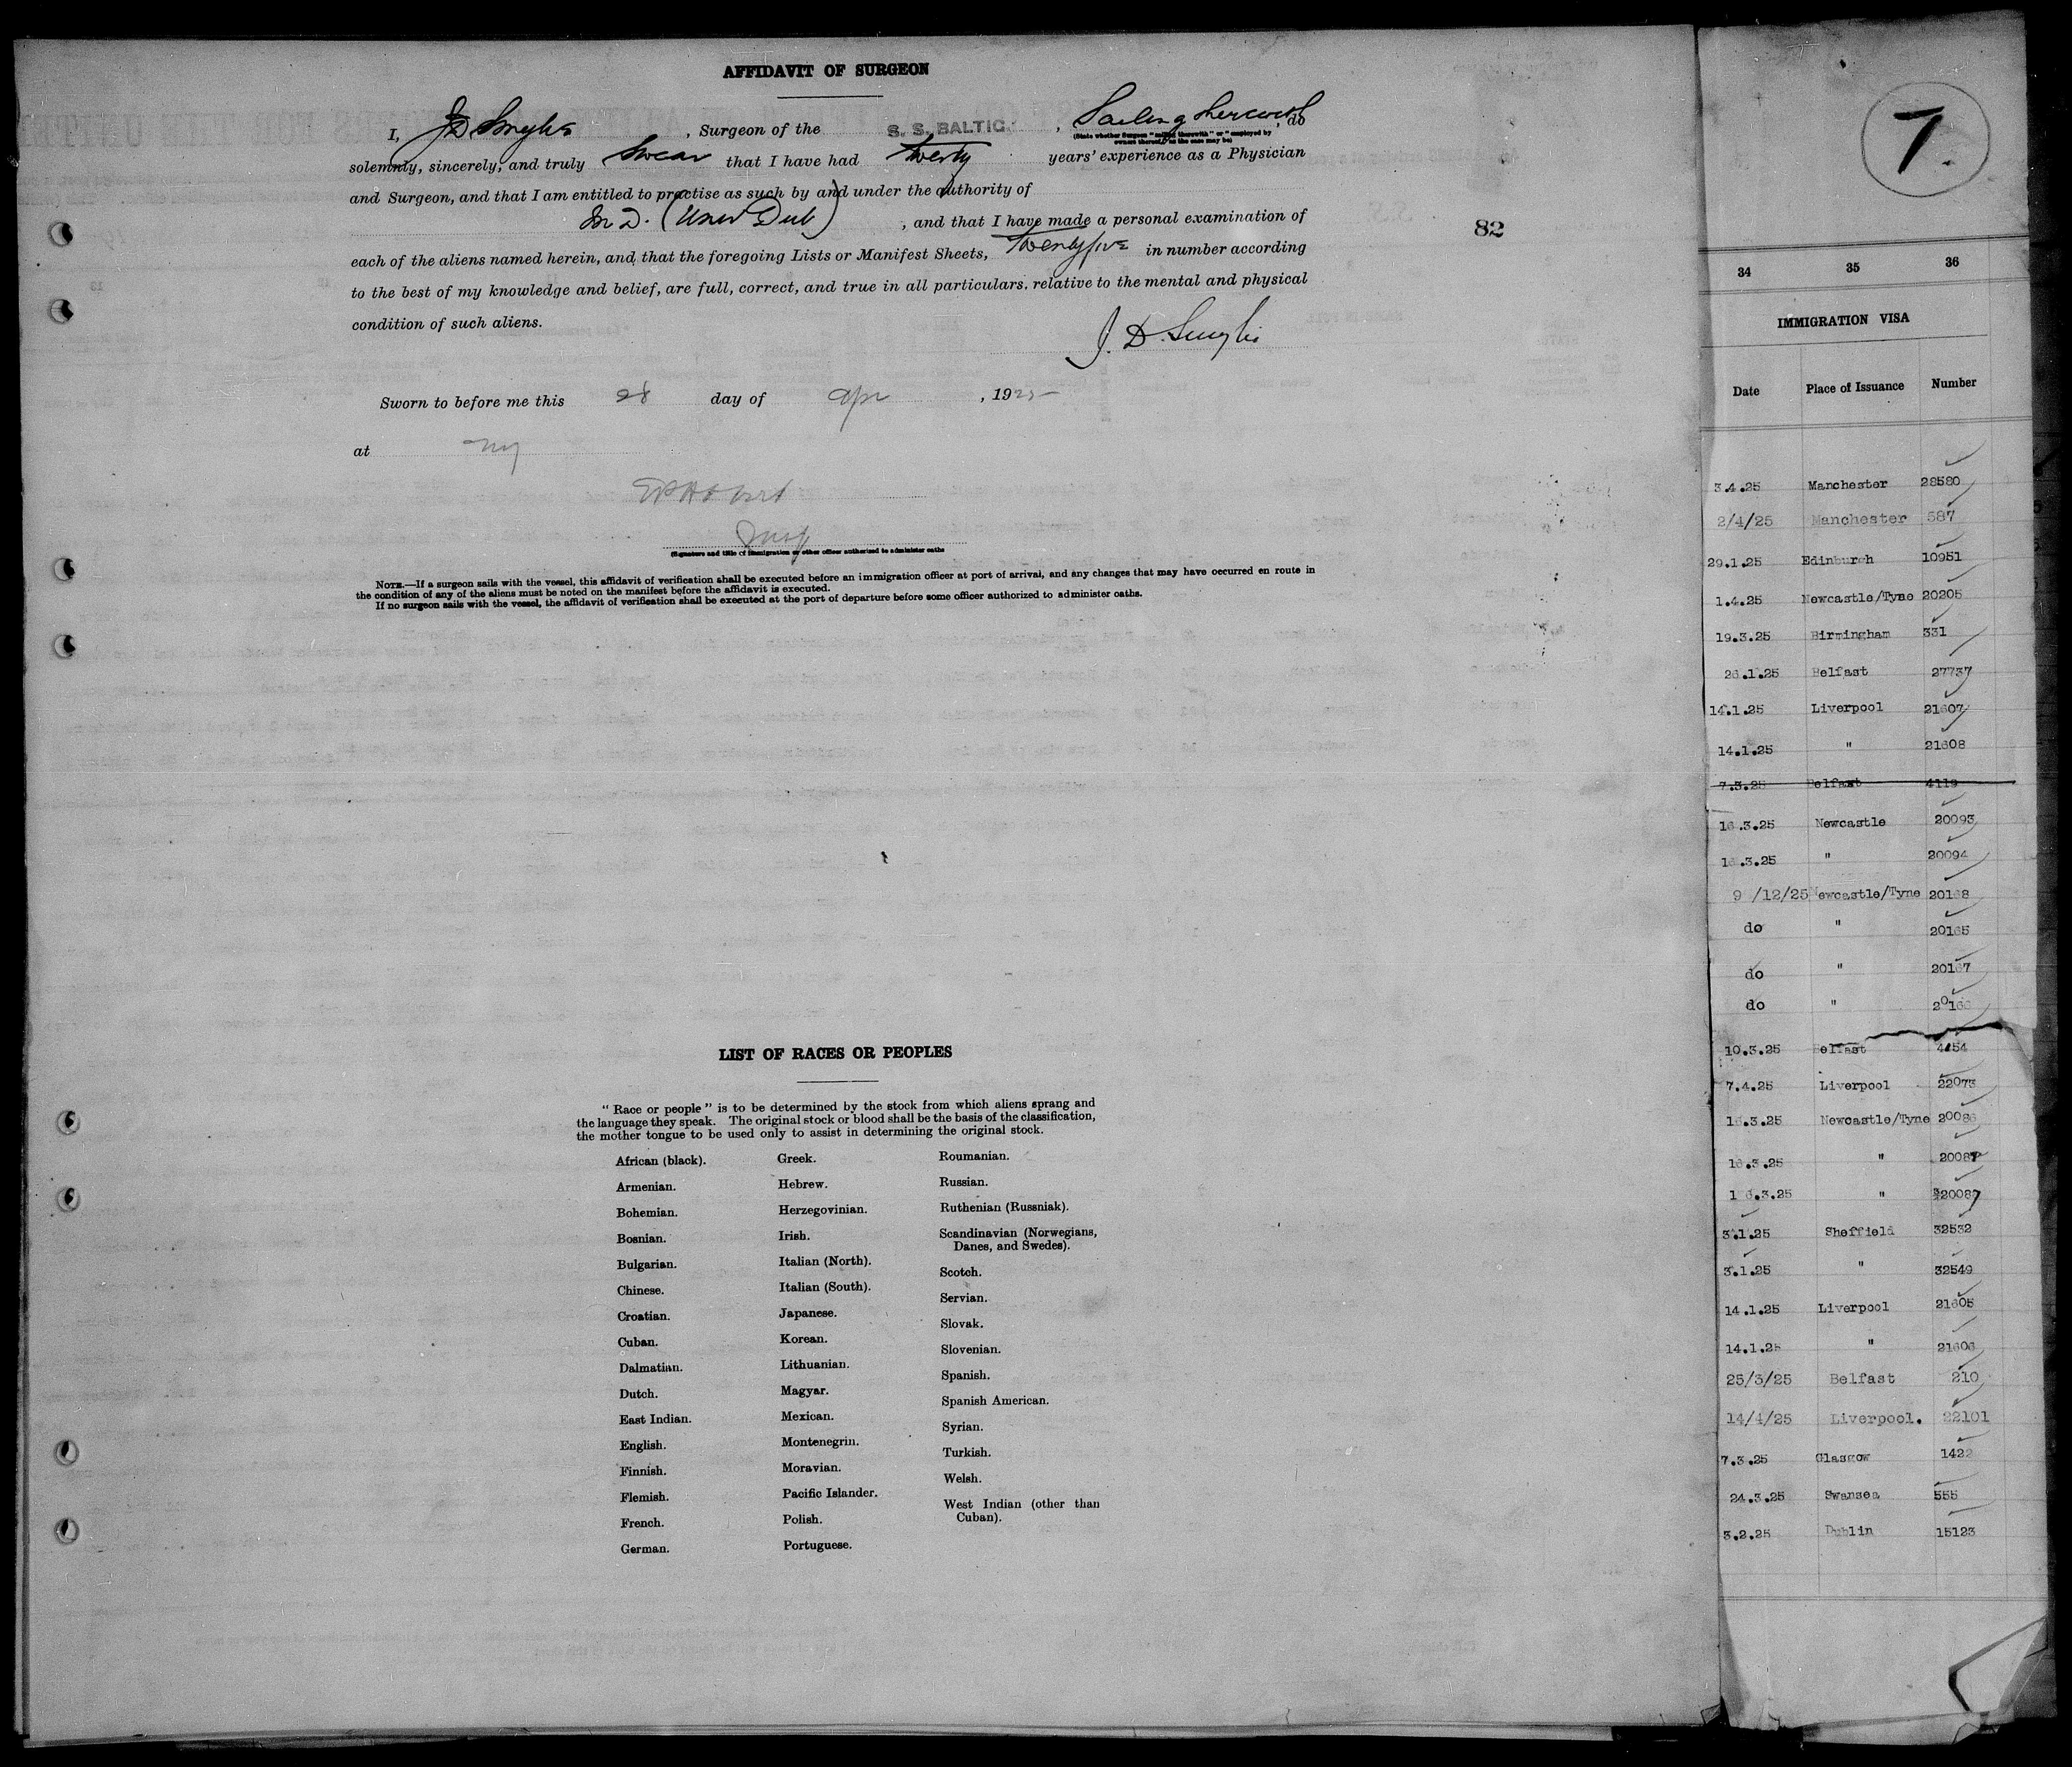 AFFIDAVIT OF SURGEON
I, J D Smyhe, Surgeon of the S. S. BALTIC, Sailing therewith, do
(State whether Surgeon "sailing therewith" or "employed by owners thereof," as the case may be)
solemnly, sincerely, and truly swear that I have had twenty years' experience as a Physician
and Surgeon, and that I am entitled to practise as such by and under the authority of
M. D. (Univ Dub), and that I have made a personal examination of
each of the aliens named herein, and that the foregoing Lists or Manifest Sheets, twentyfive in number according
to the best of my knowledge and belief, are full, correct, and true in all particulars, relative to the mental and physical
condition of such aliens.
J. D. Smyhe
Sworn to before me this 28 day of Apr, 1925
at NY
(Signature and title of immigration or other officer authorized to administer oaths
NOTE.—If a surgeon sails with the vessel, this affidavit of verification shall be executed before an immigration officer at port of arrival, and any changes that may have occurred en route in
the condition of any of the aliens must be noted on the manifest before the affidavit is executed.
If no surgeon sails with the vessel, the affidavit of verification shall be executed at the port of departure before some officer authorized to administer oaths.
82
LIST OF RACES OR PEOPLES
"Race or people" is to be determined by the stock from which aliens sprang and
the language they speak. The original stock or blood shall be the basis of the classification,
the mother tongue to be used only to assist in determining the original stock.
African (black).
Armenian.
Bohemian.
Bosnian.
Bulgarian.
Chinese.
Croatian.
Cuban.
Dalmatian.
Dutch.
East Indian.
English.
Finnish.
Flemish.
French.
German.
Greek.
Hebrew.
Herzegovinian.
Irish.
Italian (North).
Italian (South).
Japanese.
Korean.
Lithuanian.
Magyar.
Mexican.
Montenegrin.
Moravian.
Pacific Islander.
Polish.
Portuguese.
Roumanian.
Russian.
Ruthenian (Russniak).
Scandinavian (Norwegians,
Danes, and Swedes).
Scotch.
Servian.
Slovak.
Slovenian.
Spanish.
Spanish American.
Syrian.
Turkish.
Welsh.
West Indian (other than
Cuban).
7.
34 35 36
IMMIGRATION VISA
Date Place of Issuance Number
3.4.25 Manchester 28580
2/4/25 Manchester 587
29.1.25 Edinburgh 10951
1.4.25 Newcastle/Tyne 20205
19.3.25 Birmingham 331
26.1.25 Belfast 27737
14.1.25 Liverpool 21607
14.1.25 " 21608
7.3.25 Belfast 4119
16.3.25 Newcastle 20093
16.3.25 " 20094
9 /12/25 Newcastle/Tyne 20168
do " 20165
do " 20167
do " 20166
10.3.25 Belfast 4154
7.4.25 Liverpool 22073
16.3.25 Newcastle/Tyne 20086
16.3.25 "
16.3.25 " 20087
3.1.25 Sheffield 32532
3.1.25 " 32549
14.1.25 Liverpool 21605
14.1.25 " 21606
25/3/25 Belfast 210
14/4/25 Liverpool. 22101
7.3.25 Glasgow 1422
24.3.25 Swansea 555
3.2.25 Dublin 15123